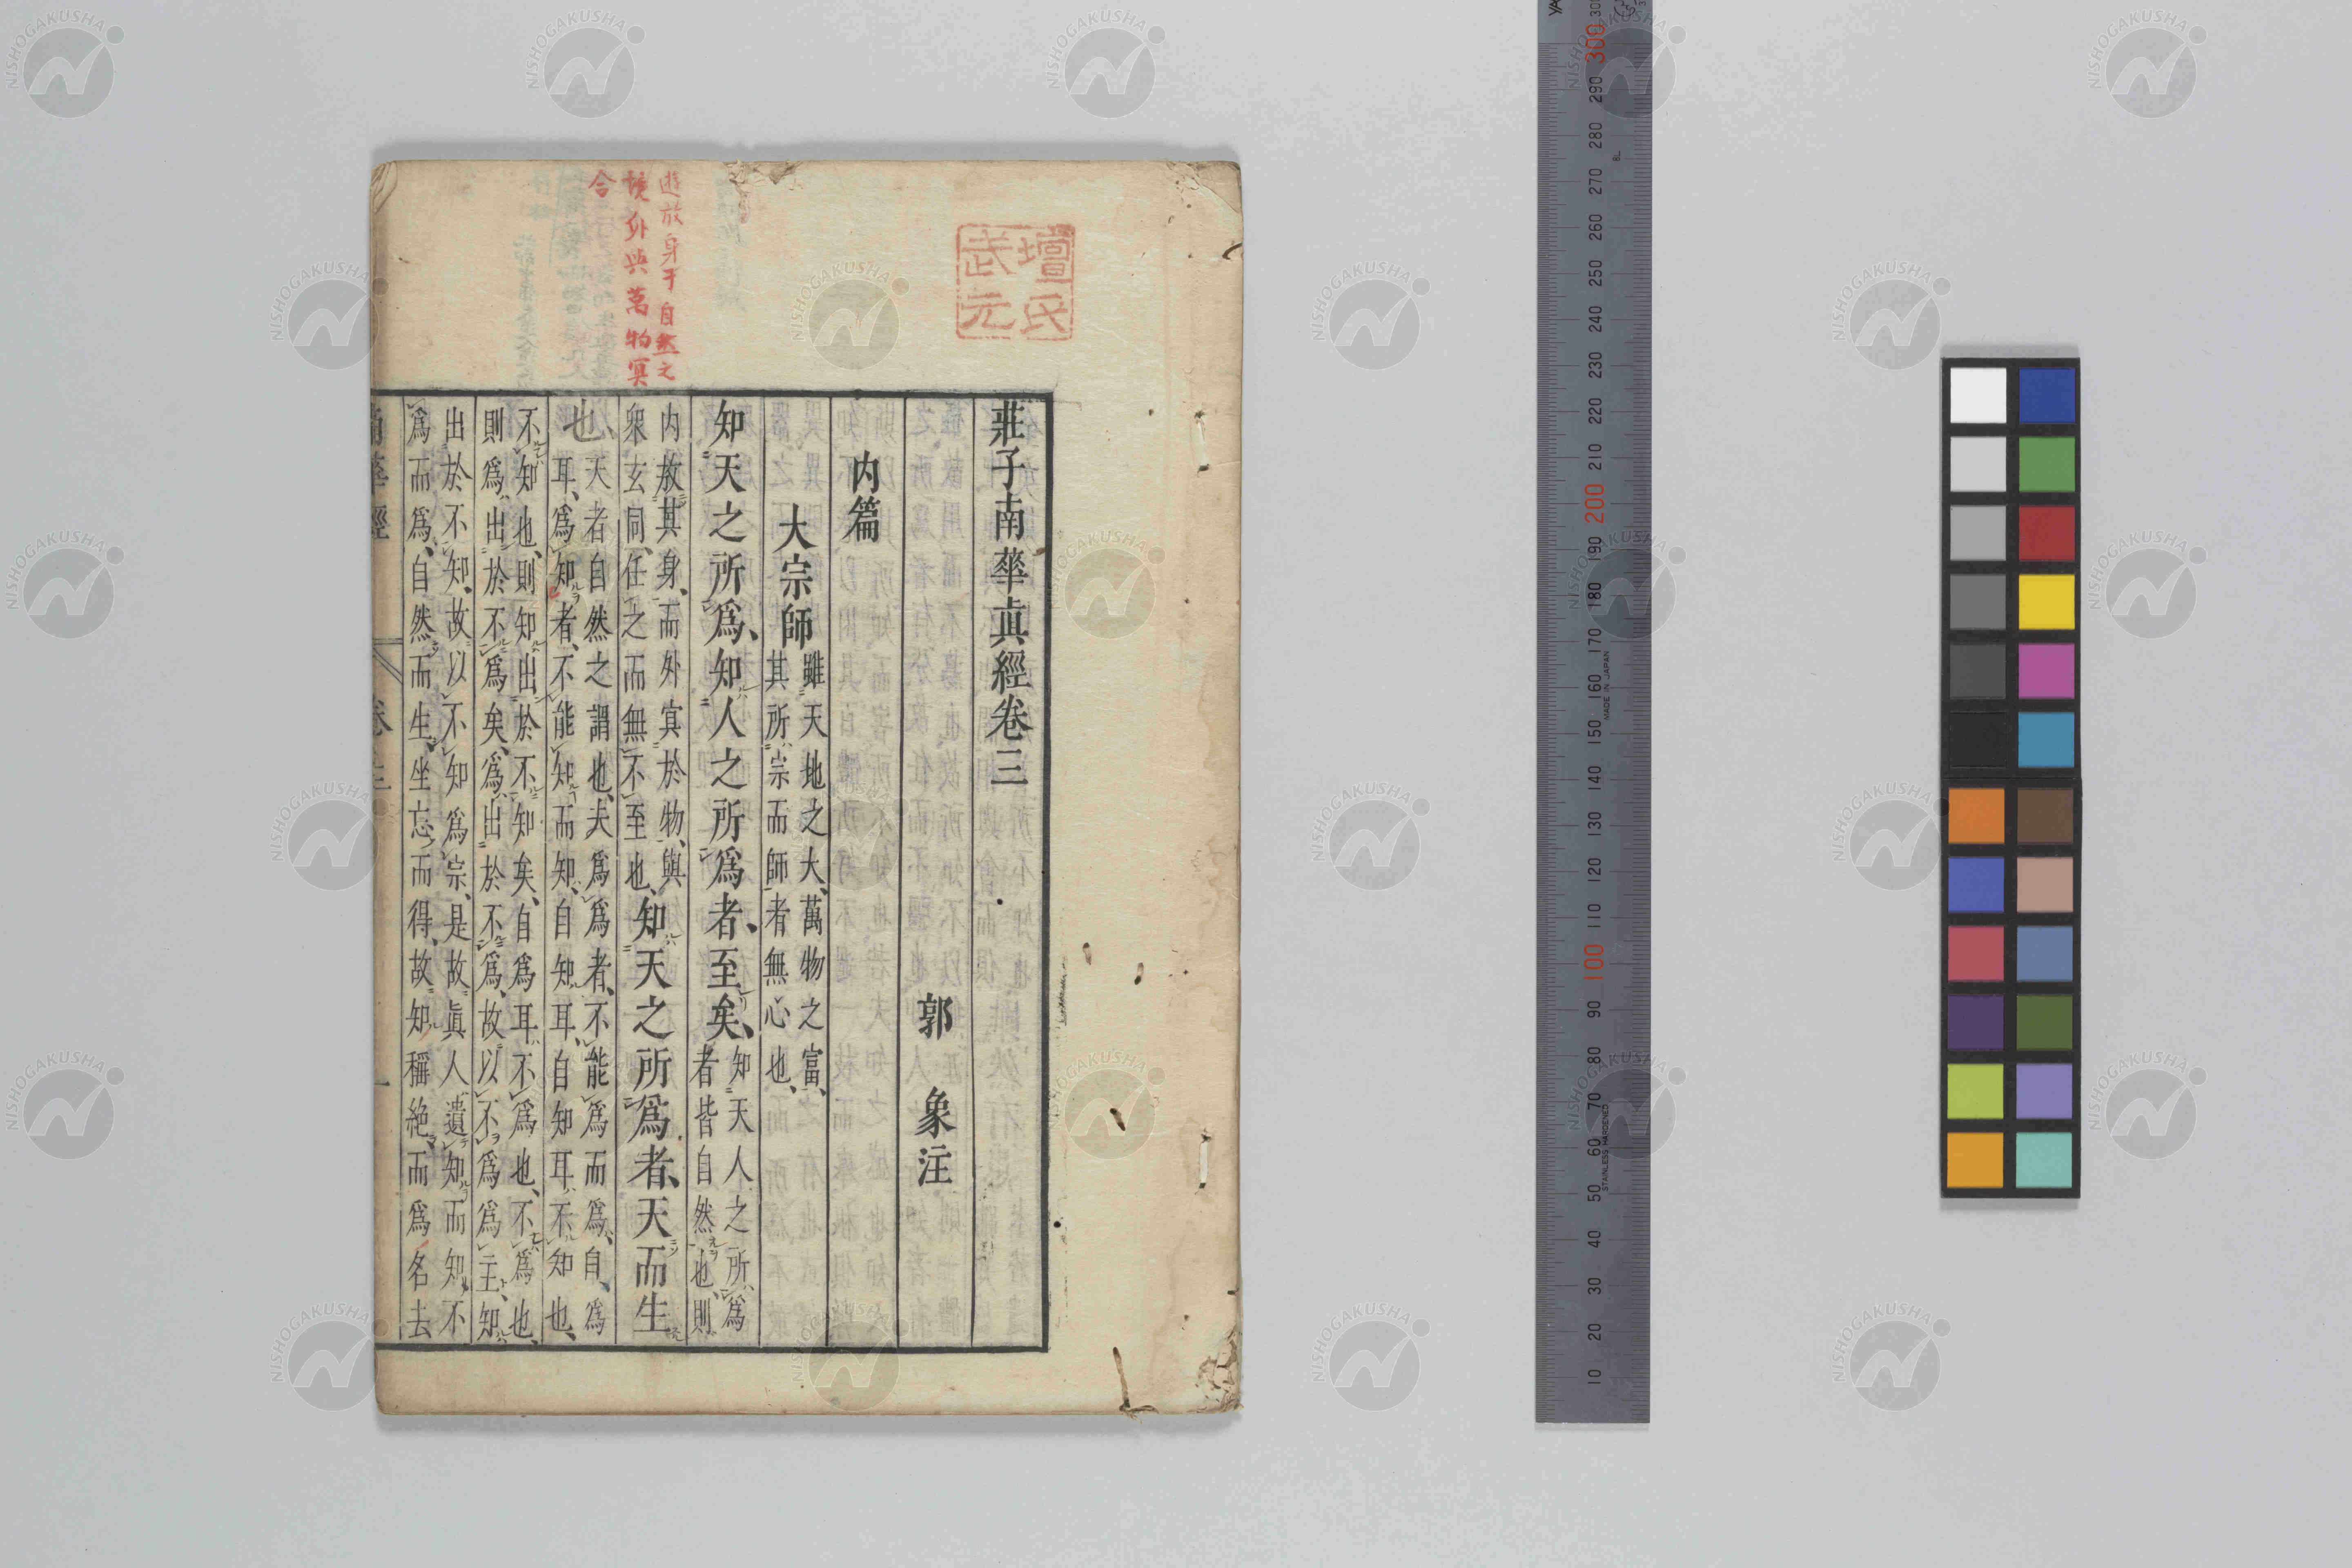 莊子南華眞經卷三
郭象注
内篇
大宗師
雖天地之大、萬物之富、
其所宗而師者無心也、
知天之所爲、知人之所爲者、至矣、
知天人之所爲
者皆自然也、則
内放其身、而外㝠於物、與
衆玄同、任之而無不至也、
知天之所爲者、天而生
也、
天者自然之謂也、夫爲爲者、不能爲而爲、自、爲
耳、爲知者、不能知而知、自知耳、自知耳、不知也、
不知也、則知出於不知矣、自爲耳、不爲也、不爲也、
則爲出於不爲矣、爲出於不爲、故以不爲爲主、知
出於不知、故以不知爲宗、是故眞人遺知而知、不
爲而爲、自然而生、坐忘而得、故知稱絶而爲名去
南華經
卷三
一
遊放身于自然之
境外與萬物冥
合
壇氏
武元
NISHOGAKUSHA
300
290
280
270
260
250
240
230
220
210
200
190
180
170
160
150
140
130
120
110
100
90
80
70
60
50
40
30
20
10
MADE IN JAPAN
STAINLESS HARDENED